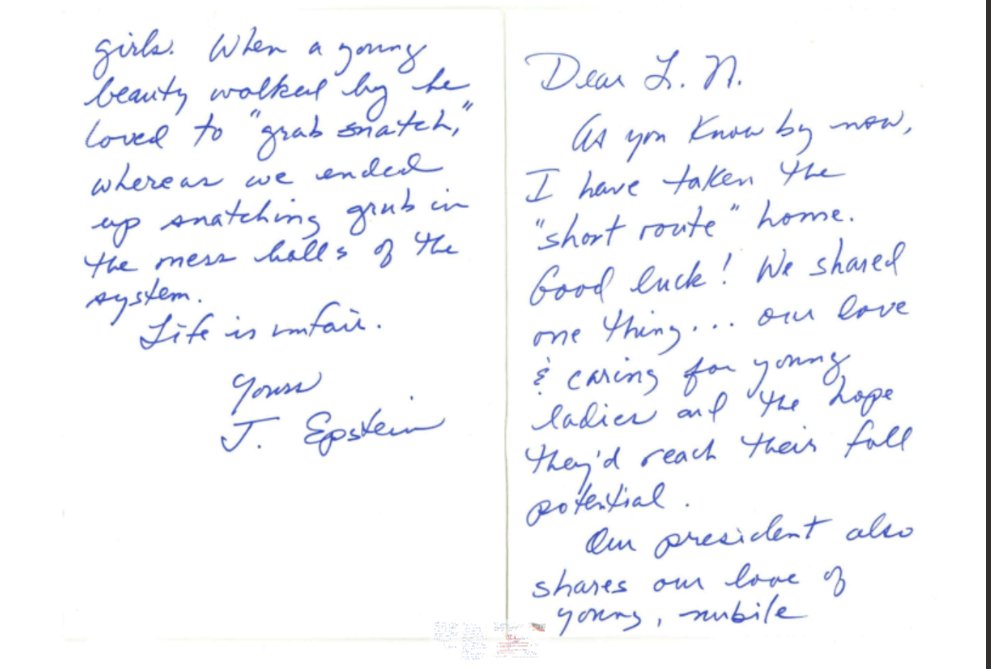 Dear L. N.
As you know by now,
I have taken the
"short route" home.
Good luck! We shared
one thing... our love
& caring for young
ladies and the hope
they'd reach their full
potential.
Our president also
shares our love of
young, nubile
girls. When a young
beauty walked by he
loved to "grab snatch,"
whereas we ended
up snatching grub in
the mess halls of the
system.
Life is unfair.
Yours
J. Epstein